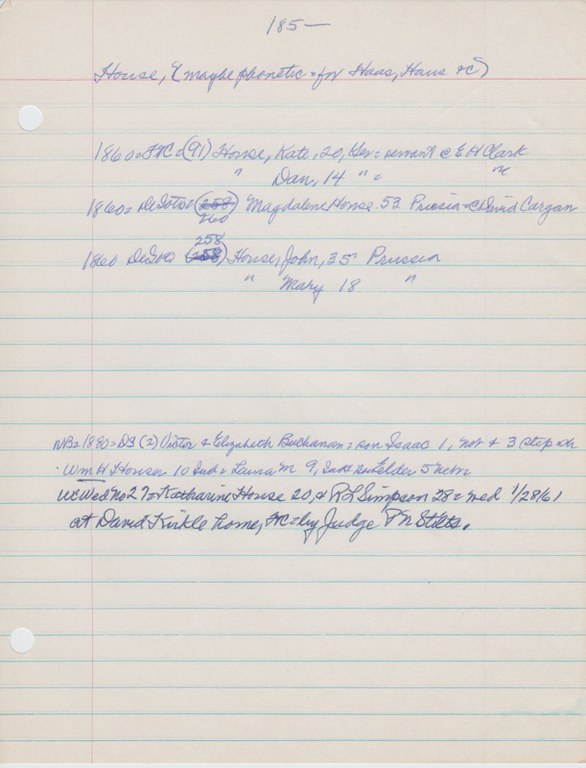 185—
House, (maybe phonetic for Haas, Haus &c)
1860 = FtC = (91) House, Kate, 20, Ger = servant c E H Clark
" Dan, 14 " "
1860 = DeSoto = (258) Magdalene House 53 Prussia c David Cargan
260
258
1860 DeSoto (258) House, John, 35 Prussia
" Mary 18 "
NB = 1880 = DS (2) Victor & Elizabeth Buchanan = son Isaac 1, Nov & 3 step ch
Wm H Houser 10 = Laura M 9, 5 Nebr
WCWed No 27 = Katharine House 20, & R L Simpson 28 = wed 1/28/61
at David Kirkle home, FtC = by Judge P N Stilts.